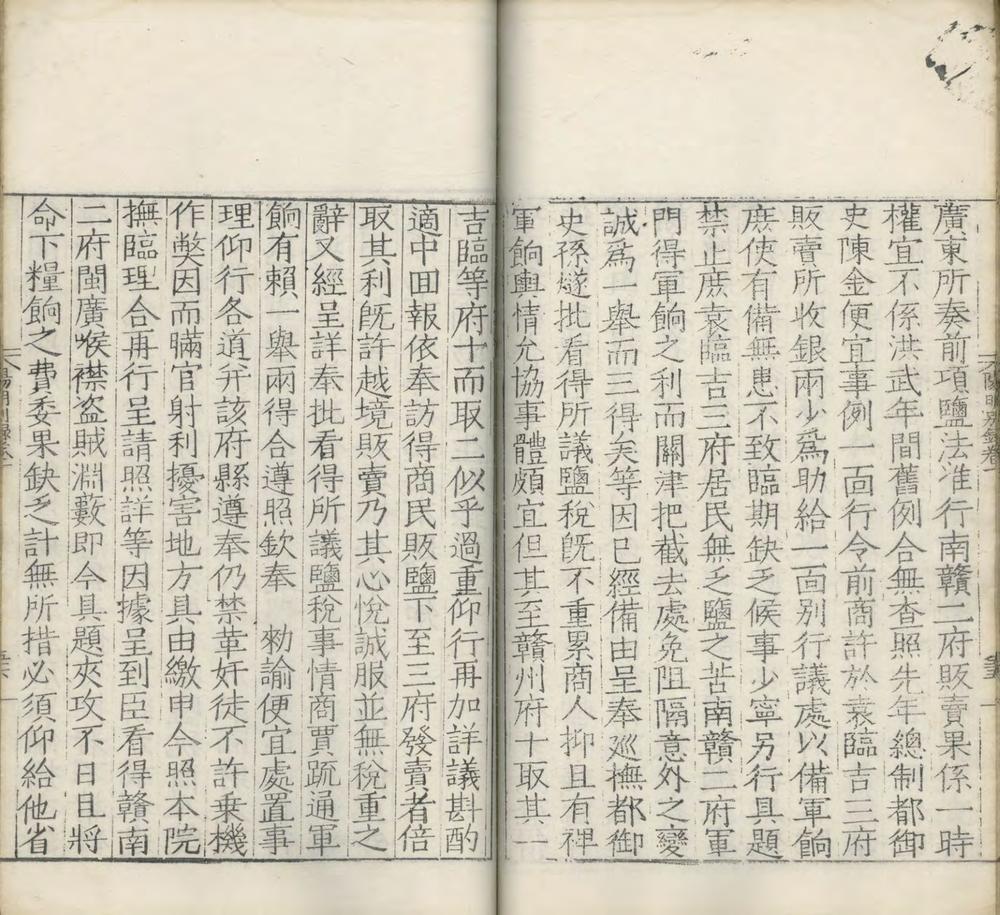 廣東所奏前項鹽法准行南贛二府販賣果係一時
權宜不係洪武年間舊例合無查照先年總制都御
史陳金便宜事例一面行令前商許於袁臨吉三府
販賣所收銀兩少為助給一面別行議處以備軍餉
庶使有備無患不致臨期缺乏候事少寧另行具題
禁止庶袁臨吉三府居民無乏鹽之苦南贛二府軍
門得軍餉之利而關津把截去處免阻隔意外之變
誠為一舉而三得矣等因已經備由呈奉巡撫都御
史孫燧批看得所議鹽稅既不重累商人抑且有裨
軍餉輿情允協事體頗宜但其至贛州府十取其一
吉臨等府十而取二似乎過重仰行再加詳議斟酌
適中回報依奉訪得商民販鹽下至三府發賣者倍
取其利既許越境販賣乃其心悅誠服並無稅重之
辭又經呈詳奉批看得所議鹽稅事情商賈疏通軍
餉有賴一舉兩得合遵照欽奉 勑諭便宜處置事
理仰行各道并該府縣遵奉仍禁革奸徒不許乗機
作獘因而瞞官射利擾害地方具由繳申今照本院
撫臨理合再行呈請照詳等因據呈到臣看得贛南
二府閩廣喉襟盜賊淵藪即今具題夾攻不日且將
命下糧餉之費委果缺乏計無所措必須仰給他省